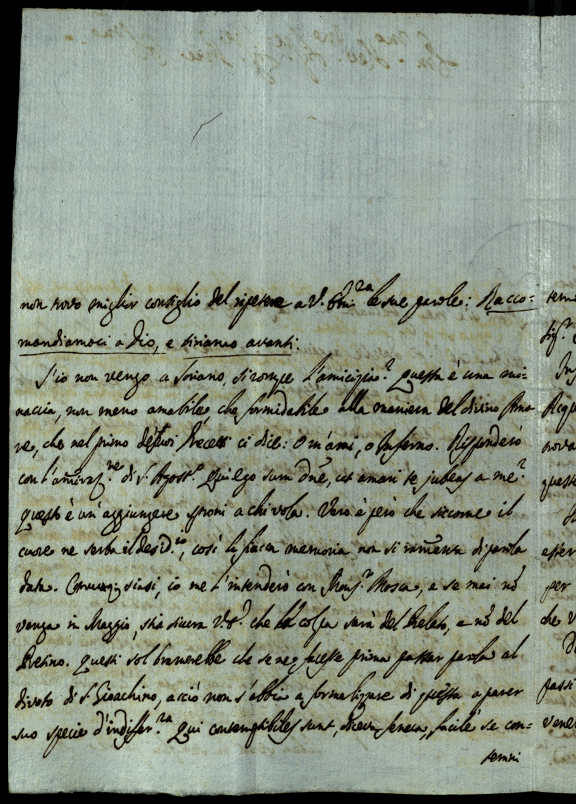 non trovo miglior consiglio del ripetere a V. Em.za le sue parole: Racco-
mandiamoci a Dio, e tiriamo avanti.
S'io non vengo a Soriano, si rompe l'amicizia? Questa è una mi-
naccia, non meno amabile che formidabile alla maniera del divino Amo-
re, che nel primo de' suoi Precetti ci dice: O m'ami, o Inferno. Risponderò
con l'ammiraz.ne di S. Agost.o Quis ego sum Dñe, ut amari te jubeas a me?
questo è un aggiungere sproni a chi vola. Vero è però che siccome il
cuore ne serba il desid.o, così la fiacca memoria non si ramenta di parola
data. Comunq; siasi, io me l'intenderò con Mons.r Mosca, e se mai nõ
venga in Maggio, stia sicura V.S. che la colpa sarà del Prelato, e nõ del
Pretino. Questi sol bramerebbe che se ne facesse prima passar parola al
divoto di S. Gioachino, acciò non s'abbia a formalizare di questa a parer
suo specie d'indiffer.za Qui contemptibiles sunt, diceva Seneca, facile se con-
temni